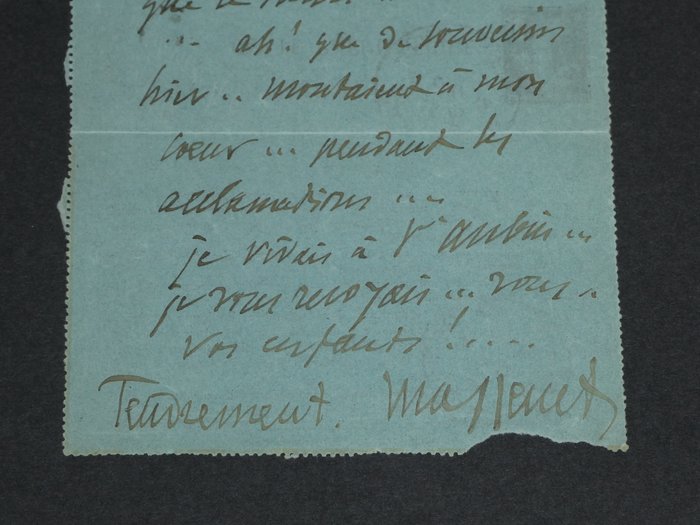 que le
... ah! que de souvenirs
hier .. montaient à mon
coeur ... pendant les
acclamations ....
je vivais à St Aubin ...
je vous revoyais ... vous ..
vos enfants! .....
Tendrement. Massenet